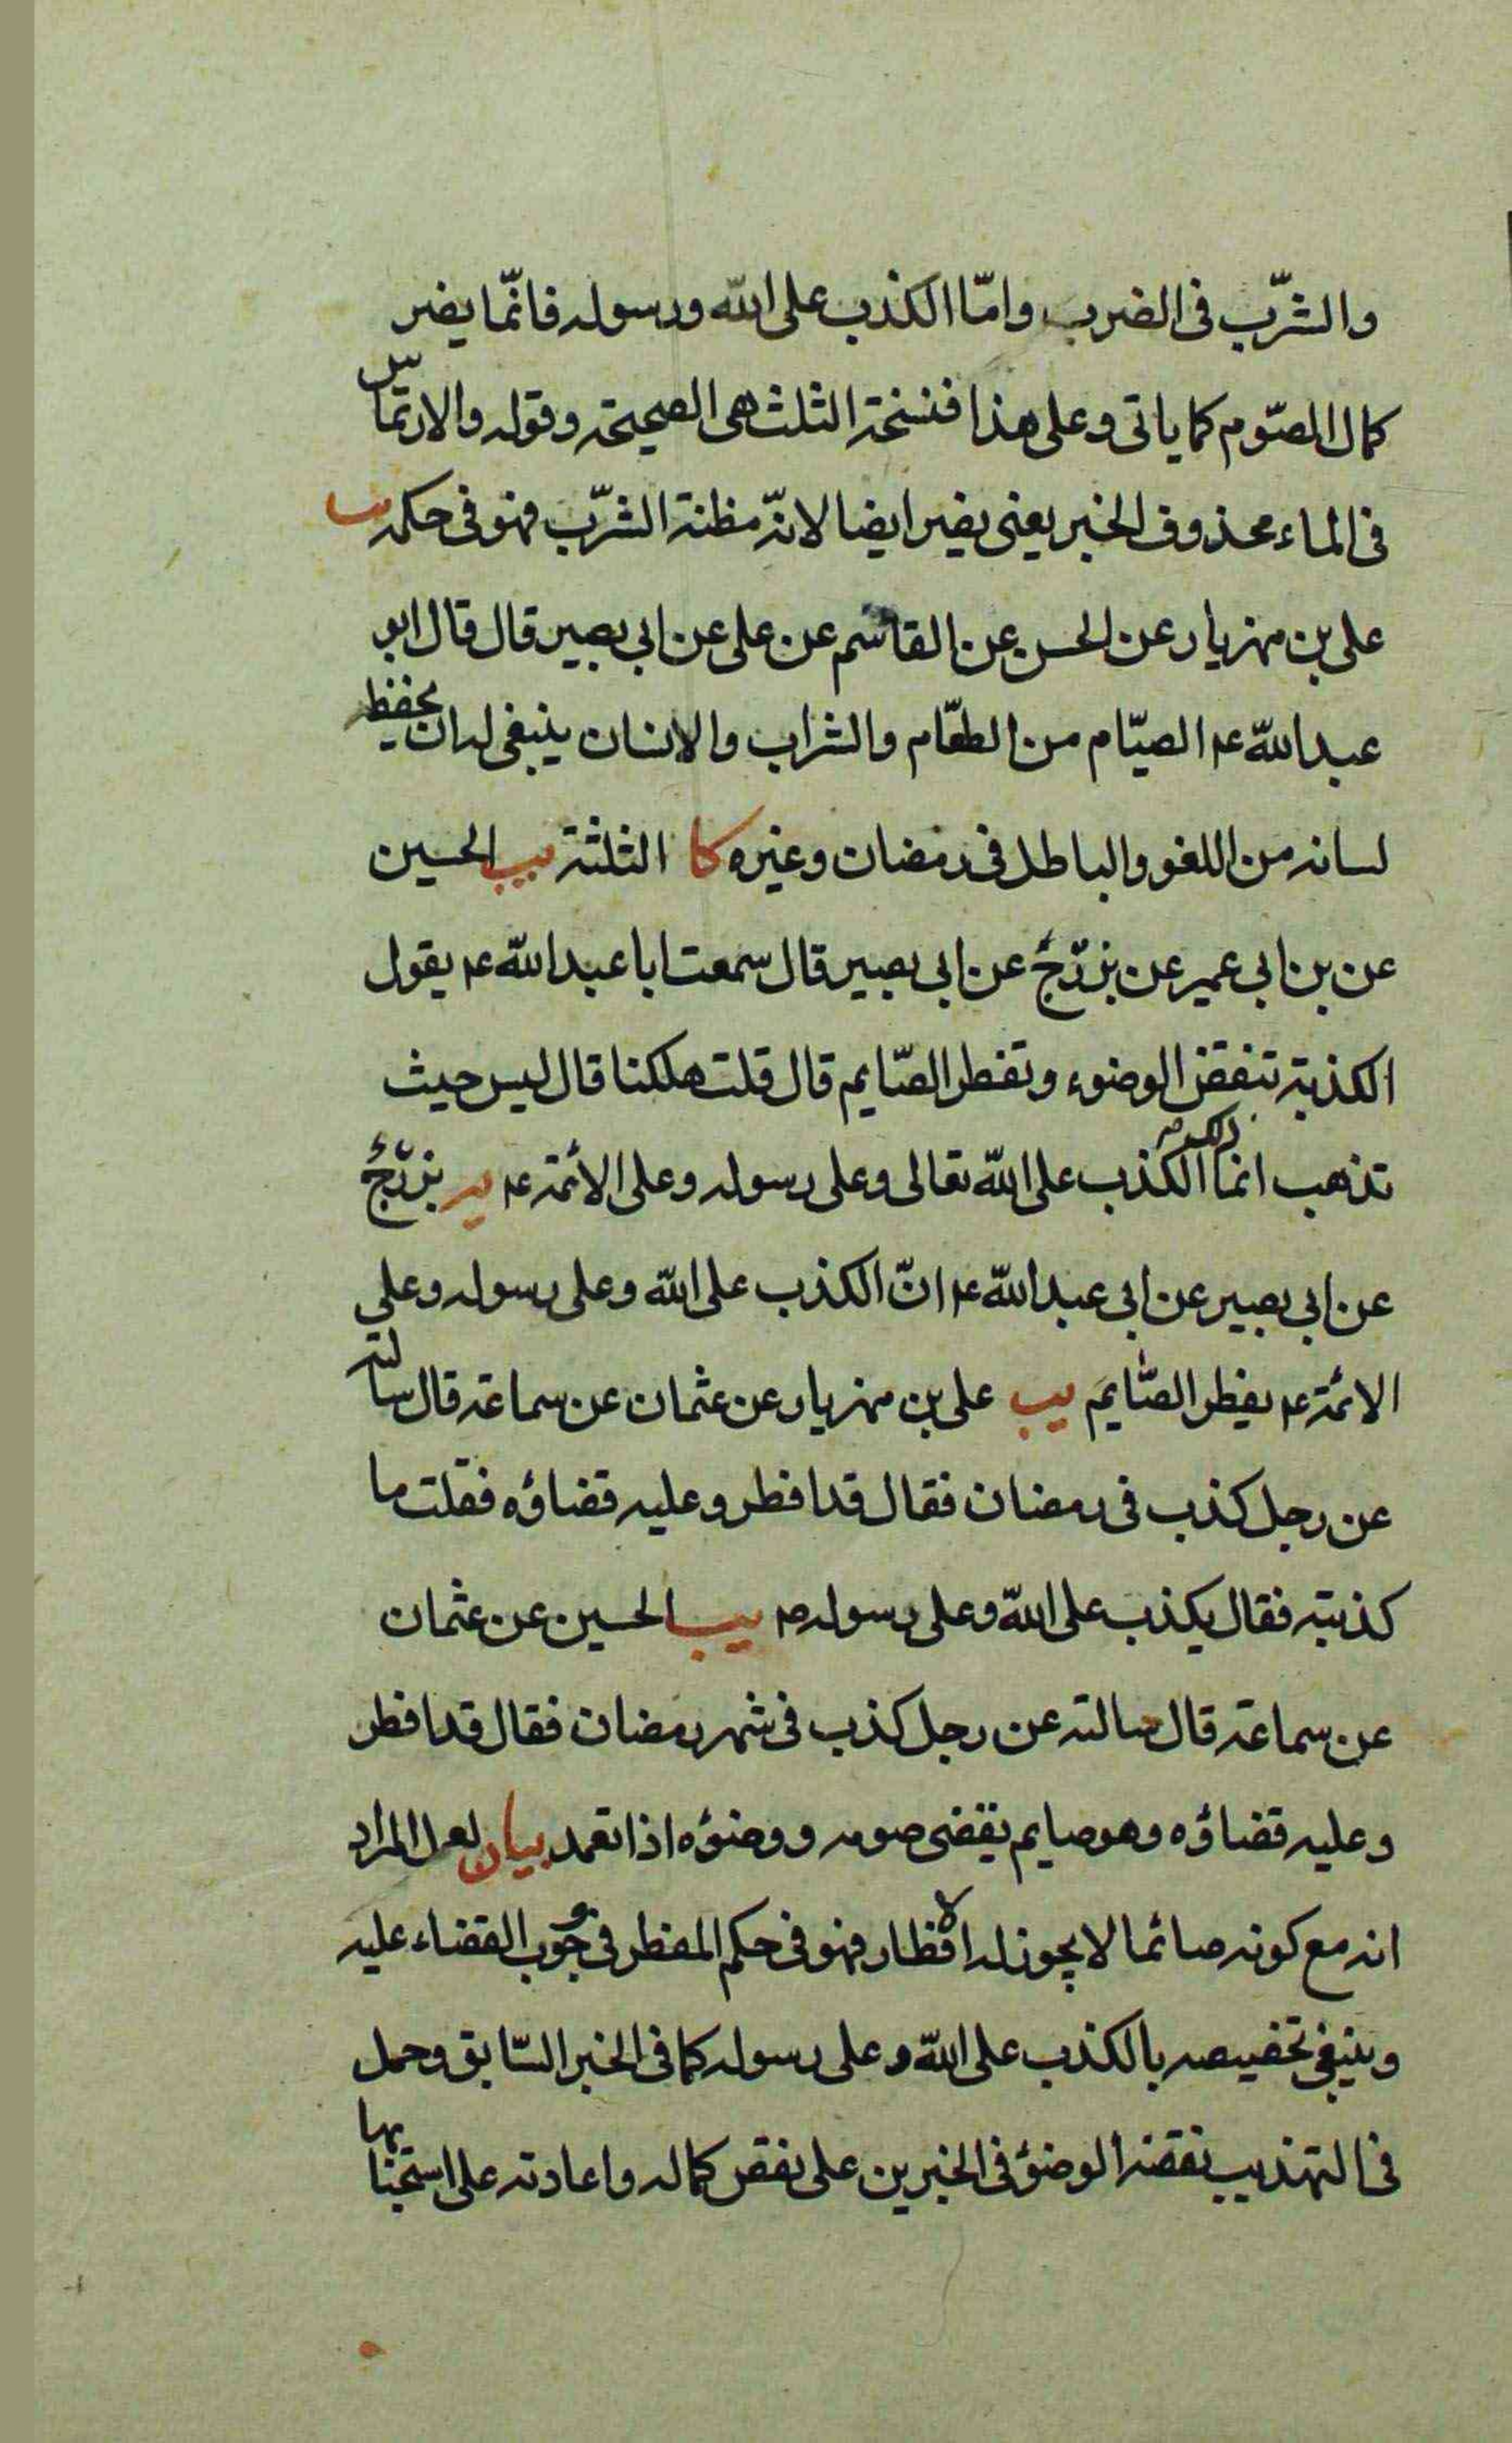 والشرّب فى الضرب وامّا الكذب على اللّه ورسوله فانّما يضر
كمال الصّوم كما ياتى وعلى هذا فنسخة الثلث هى الصحيحة وقوله والارتماس
فى الماء محذوف الخبر يعنى يضر ايضا لانّه مظنة الشرّب فهو فى حكمه يب
على بن مهزيار عن الحسن عن القاسم عن على عن ابى بصير قال قال ابو
عبد اللّه عه الصيّام من الطعّام والشراب والانسان ينبغى له ان يحفظ
لسانه من اللغو والباطل فى رمضان وغيره كا الثلثة يب الحسين
عن بن ابى عمير عن بزرّج عن ابى بصير قال سمعت ابا عبد اللّه عه يقول
الكذبة تنقض الوضوء وتفطر الصّايم قال قلت هلكنا قال ليس حيث
تذهب انما ذلك الكذب على اللّه تعالى وعلى رسوله وعلى الأئمة عه يه بزرّج
عن ابى بصير عن ابى عبد اللّه عه انّ الكذب على اللّه وعلى رسوله وعلى
الائمة عه يفطر الصّايم يب على بن مهزيار عن عثمان عن سماعة قال سالته
عن رجل كذب فى رمضان فقال قد افطر وعليه قضاؤه فقلت ما
كذبته فقال يكذب على اللّه وعلى رسوله ص يب الحسين عن عثمان
عن سماعة قال سالته عن رجل كذب فى شهر رمضان فقال قد افطر
وعليه قضاؤه وهو صايم يقضى صومه ووضؤه اذا تعمد بيان لعل المراد
انه مع كونه صائما لا يجوز له الافطار فهو فى حكم المفطر فى وجوب القضاء عليه
وينبغى تخصيصه بالكذب على اللّه وعلى رسوله كما فى الخبر السّابق وحمل
فى التهذيب نقضه الوضؤ فى الخبرين على نقض كماله واعادته على استحبابها